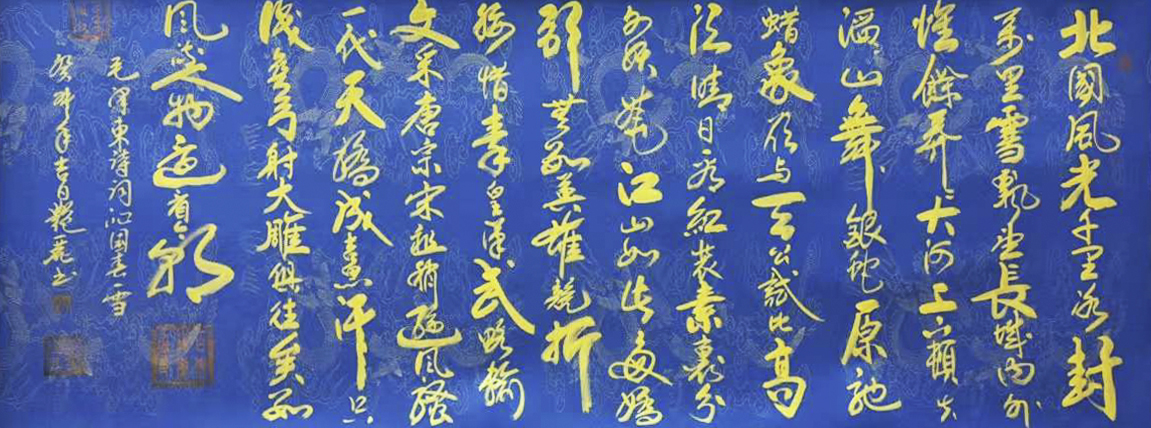 北國風光千里冰封
萬里雪飄望長城内外
惟餘莽莽大河上下頓失
滔滔山舞銀蛇原馳
蠟象欲与天公試比高
須晴日看紅裝素裹分
外妖嬈江山如此多嬌
引無數英雄競折
腰惜秦皇漢武略輸
文采唐宗宋祖稍遜風騷
一代天驕成吉思汗只
識彎弓射大雕俱往矣数
風流人物還看今朝
毛澤東詩詞沁園春雪
癸卯年吉日艷麗书